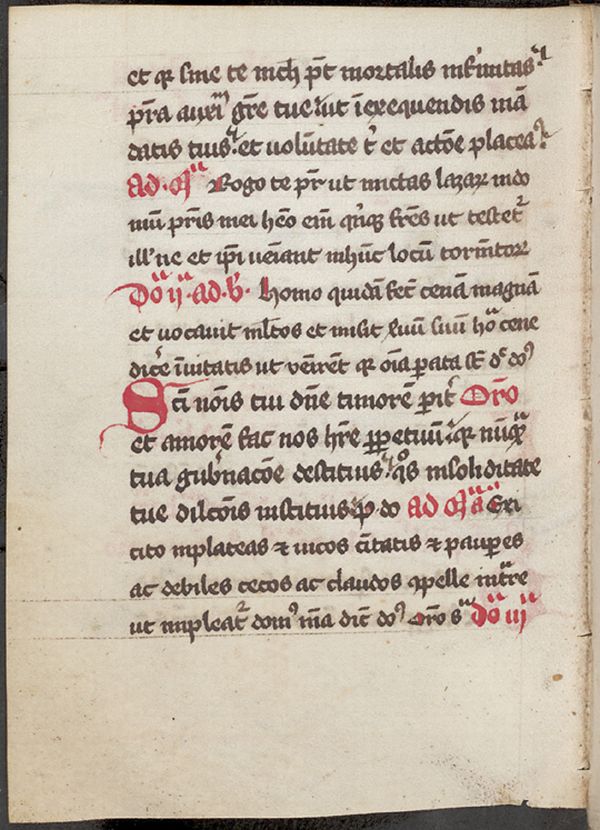 et qr sine te nich p̄t mortalis infirmitas
p̄ra auxiꝉ gr̄e tue ut ī exequendis mā
datis tuis et uolūtate t' et actōe placea
Ad m̄ Rogo te pr̄ ut mittas lazar̄ in do
mū pr̄is mei hēo eīn qnqꝫ fr̄es ut testet'
ill' ne et ip̄i ueīant in hūc locū torm̄tor̄
Do ij ad b. Homo quidā fec̄ cenā magnā
et uocauit ml̄tos et misit s̄uū suū ho cene
dic̄e īuitatis ut ueīrent qr oīa parata st̄ d̄ do
Sc̄i noīs tui dn̄e timorē pit̄ Or̄o
et amorē fac nos hr̄e ꝑpetuū qr nūqͣ
tua gub̄nacōe destituis qͦs in soliditate
tue dilcōis instituis ꝑ do Ad m̄a Exi
cito in plateas ⁊ uicos ciītatis ⁊ pauꝑes
ac debiles cecos ac claudos ꝯpelle int̄re
ut impleat' dom' m̄a dic̄ do Or̄o s Do iij